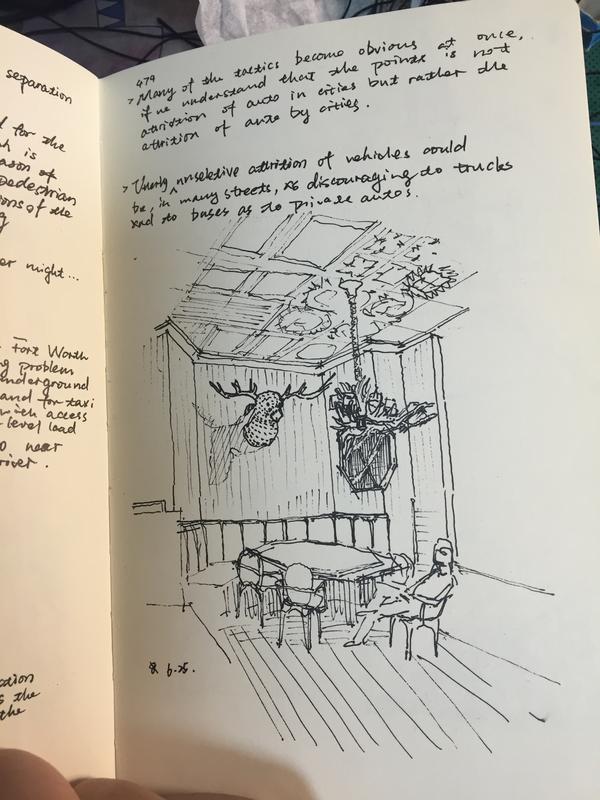 separation
d for the
ch is
ason of
Pedestrian
ions of the
g
er might...
Fort Worth
ng problem
underground
and for taxi
with access
level load
o near
river.
ation
s the
the
479
> Many of the tactics become obvious at once,
if we understand that the points is not
attrition of auto in cities but rather the
attrition of auto by cities.
> nselective attrition of vehicles could
be, in many streets, as discouraging to trucks
and to buses as to private autos.
6.25.